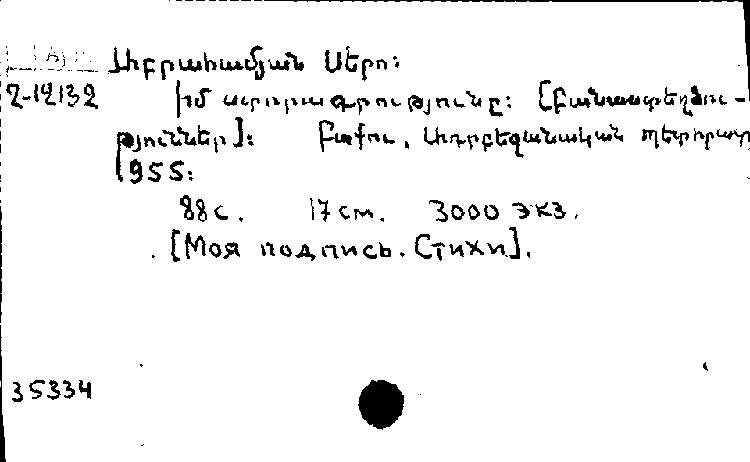 Աբրահամյան Սերո։
2-12132
Իմ ստորագրությունը։ [Բանաստեղծու-
թյուններ]։ Բաքու, Ադրբեջանական պետհրատ
1955։
88 с. 17 см. 3000 экз.
[Моя подпись. Стихи].
35334